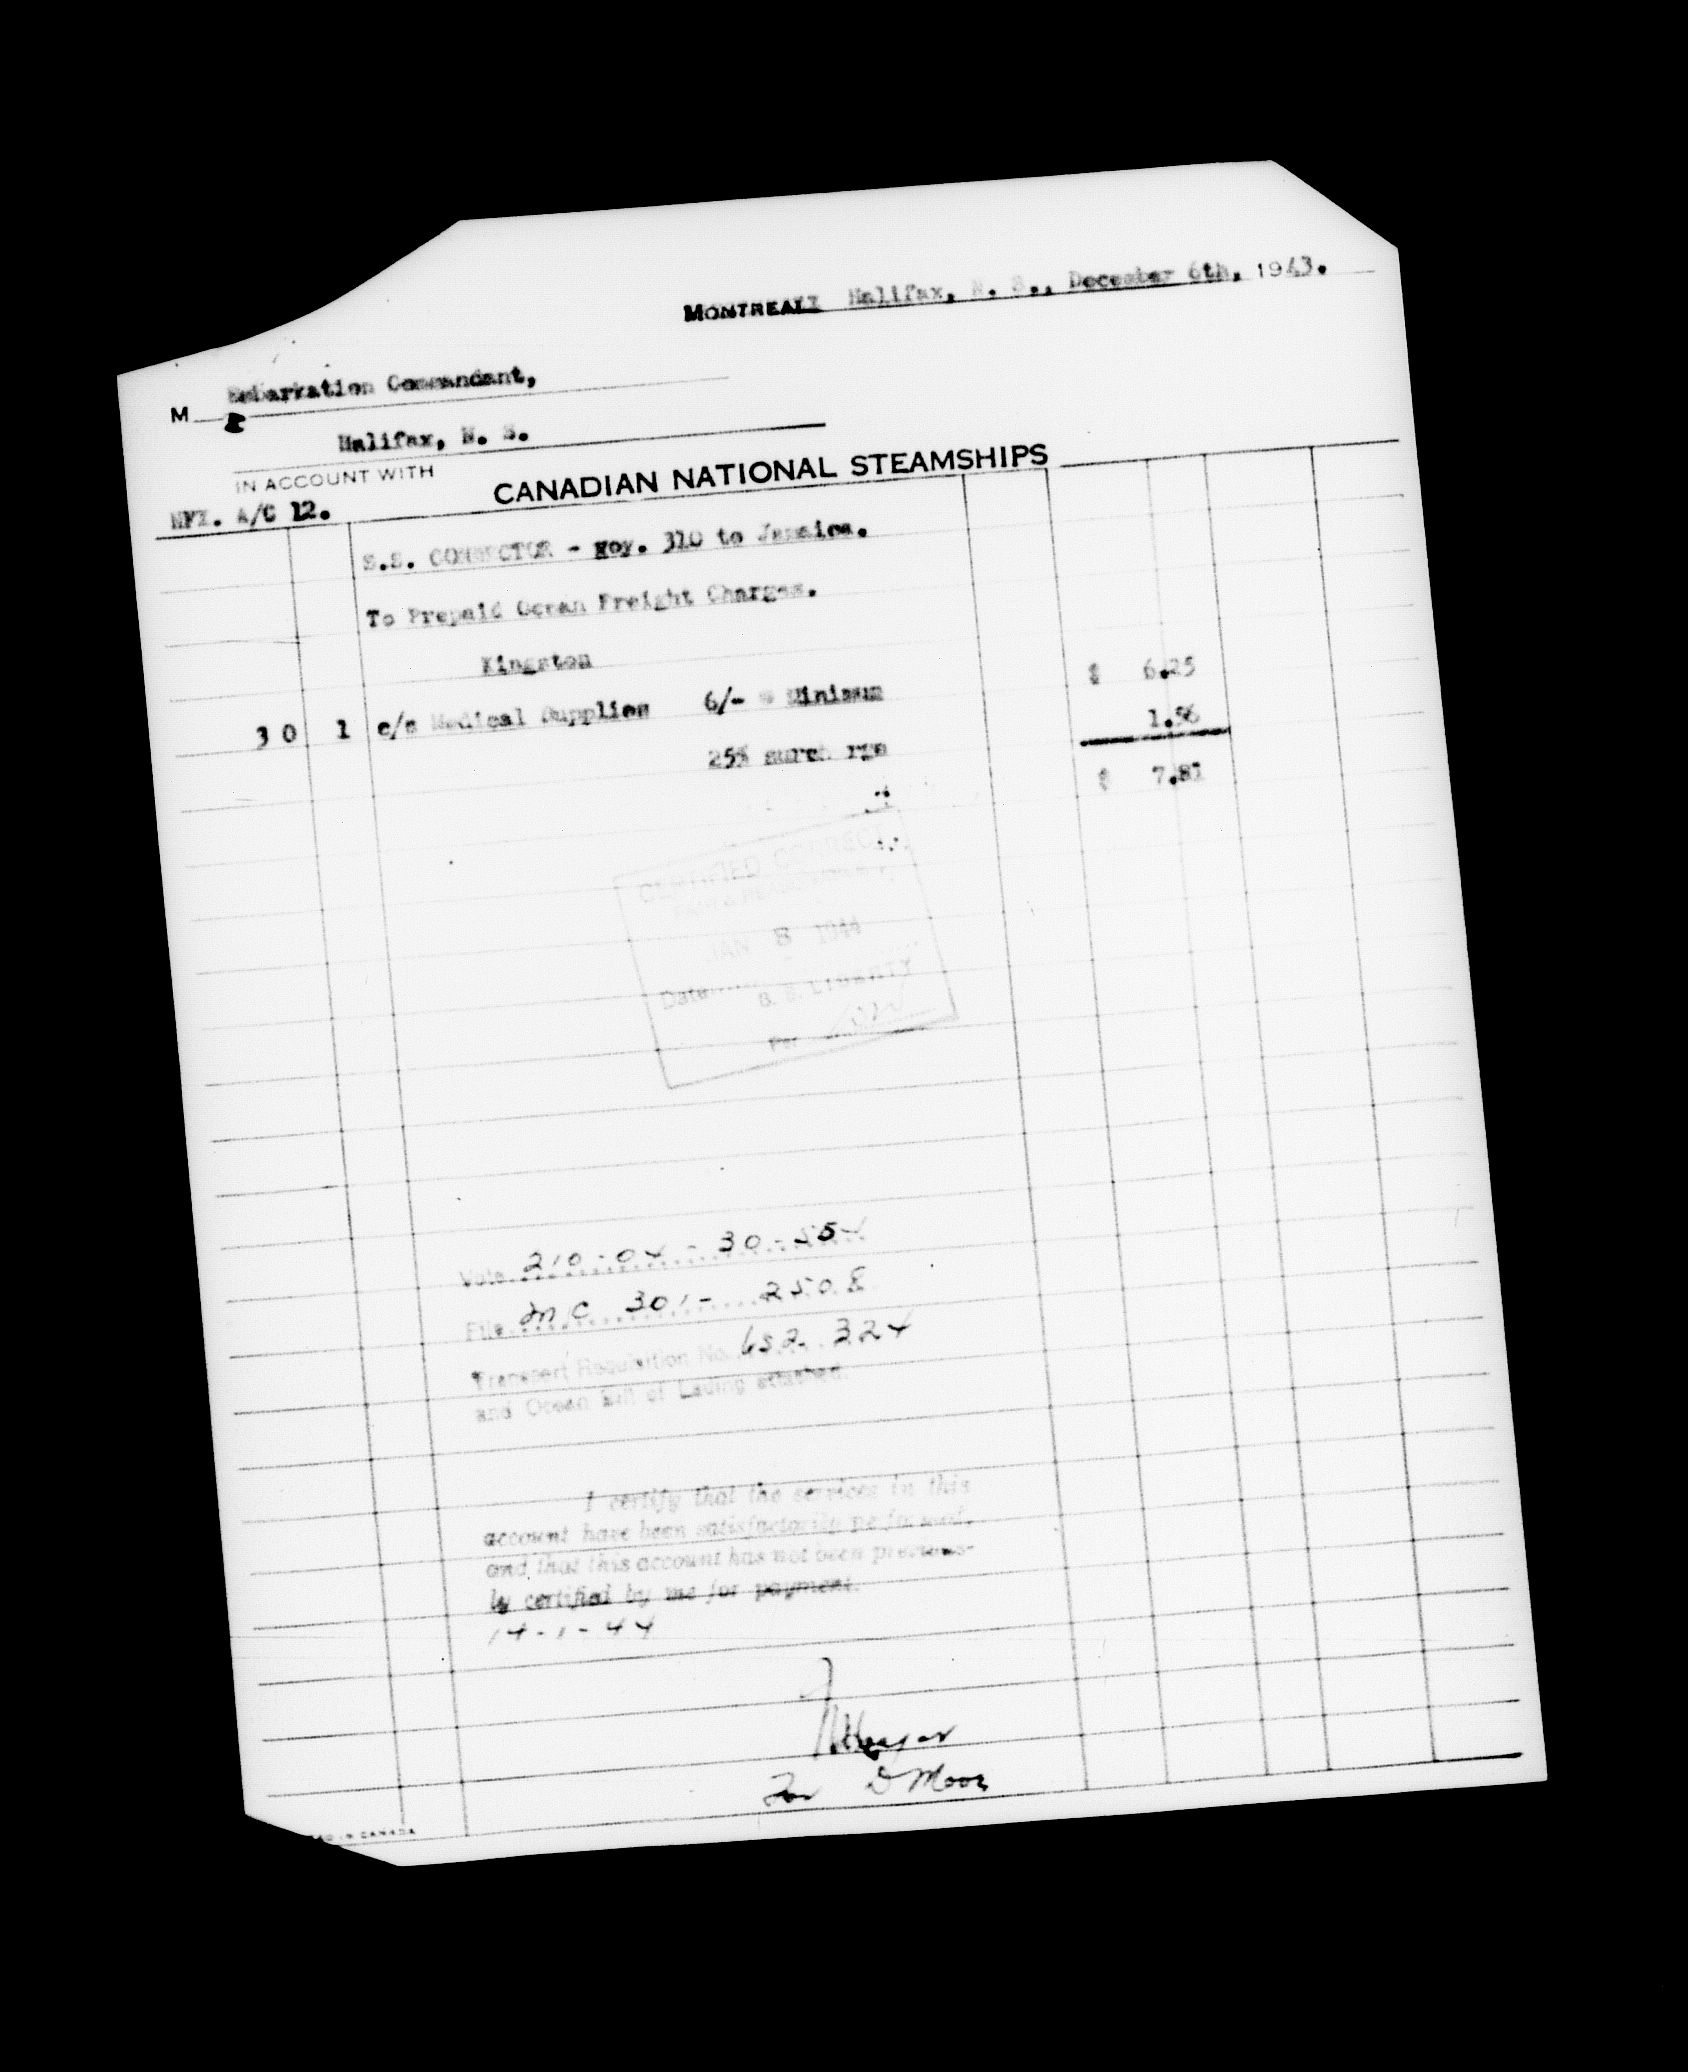 MONTREAL Halifax, N. S., December 6th, 1943.
M Embarkation Commandant,
Halifax, N. S.
IN ACCOUNT WITH
CANADIAN NATIONAL STEAMSHIPS
HFX. A/C 12.
S.S. CONNECTOR - Voy. 310 to Jamaica.
To Prepaid Ocean Freight Charges.
Kingston
30 1 c/s Medical Supplies 6/- Minimum $ 6.25
25% surcharge 1.56
$ 7.81
CERTIFIED CORRECT
JAN 8 1944
Date
Per
Vote 210-04-30-
File MC 301- 250
Transport Requisition No. 324
and Ocean Bill of Lading attached.
I certify that the services in this
account have been satisfactorily performed,
and that this account has not been previous-
ly certified by me for payment.
14-1-44
For D Moor
CANADA